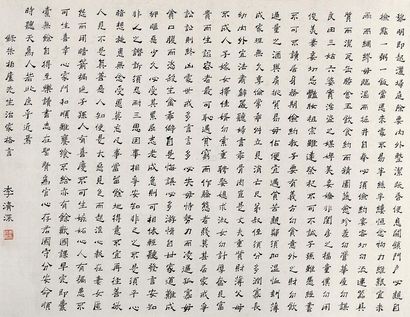 黎明即起灑掃庭除要內外整潔既昏便息關鎖門戶必親自
檢點一粥一飯當思來處不易半絲半縷恆念物力維艱宜未
雨而綢繆毋臨渴而掘井自奉必須儉約宴客切勿流連器具
質而潔瓦缶勝金玉飲食約而精園蔬愈珍饈勿營華屋勿謀
良田三姑六婆實淫盜之媒婢美妾嬌非閨房之福童僕勿用
俊美妻妾切忌豔妝祖宗雖遠祭祀不可不誠子孫雖愚經書
不可不讀居身務期儉樸教子要有義方勿貪意外之財勿飲
過量之酒與肩挑貿易毋佔便宜見貧苦親鄰須加溫恤刻薄
成家理無久享倫常乖舛立見消亡兄弟叔姪須分多潤寡長
幼內外宜法肅辭嚴聽婦言乖骨肉豈是丈夫重貲財薄父母
不成人子嫁女擇佳婿毋索重聘娶媳求淑女勿計厚奩見富
貴而生諂容者最可恥遇貧窮而作驕態者賤莫甚居家戒爭
訟訟則終凶處世戒多言言多必失毋恃勢力而凌逼孤寡毋
貪口腹而恣殺生禽乖僻自是悔誤必多頹惰自甘家道難成
狎暱惡少久必受其累屈志老成急則可相依輕聽發言安知
非人之譖訴當忍耐三思因事相爭焉知非我之不是須平心
暗想施惠無念受恩莫忘凡事當留餘地得意不宜再往善欲
人見不是真善惡恐人知便是大惡見色而起淫心報在妻女匿
怨而用暗箭禍延子孫人有喜慶不可生嫉妒心人有禍患不
可生喜幸心家門和順雖饔飧不繼亦有餘歡國課早完即囊
橐無餘自得至樂讀書志在聖賢為官心存君國守分安命順
時聽天為人若此庶乎近焉
錄朱柏廬先生治家格言
李濟深